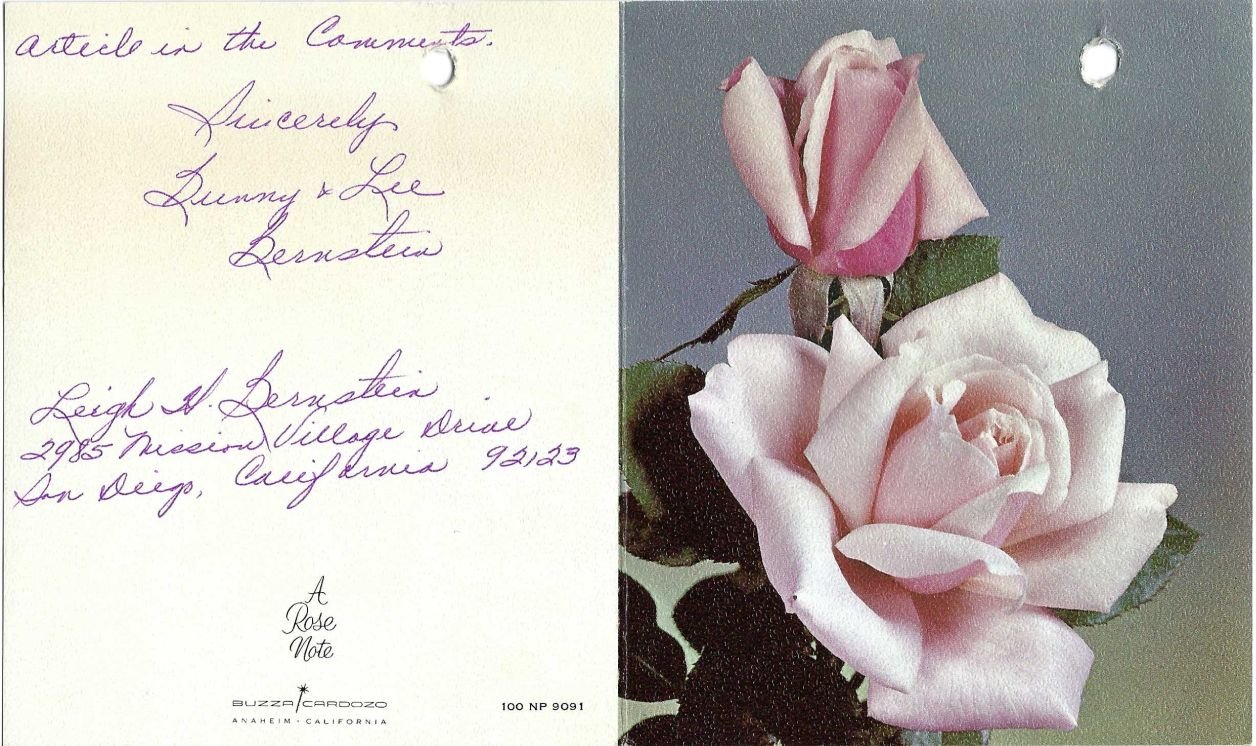 article in the Comments.
Sincerely
Bunny & Lee
Bernstein
Leigh H. Bernstein
2985 Mission Village Drive
San Diego, California 92123
A
Rose
Note
BUZZA CARDOZO
ANAHEIM · CALIFORNIA
100 NP 9091